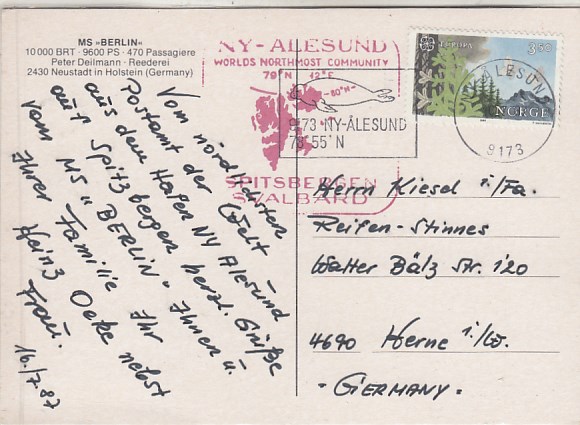 MS »BERLIN«
10 000 BRT · 9600 PS · 470 Passagiere
Peter Deilmann · Reederei
2430 Neustadt in Holstein (Germany)
NY-ÅLESUND
WORLDS NORTHMOST COMMUNITY
79°N 12°E
-80°N-
9173 NY-ÅLESUND
78°55'N
SPITSBERGEN
SVALBARD
EUROPA
3.50
NORGE
NY-ÅLESUND
9173
Vom nördlichsten
Postamt der Welt
aus dem Hafen NY Ålesund
auf Spitzbergen herzl. Grüße
vom MS "BERLIN" Ihnen u.
Ihrer Familie Ihr
Heinz Oeke nebst
Frau.
16./7.87
Herrn Kiesel i/Fa.
Reifen-Stinnes
Walter Bälz Str. 120
4690 Herne i./W.
- GERMANY -